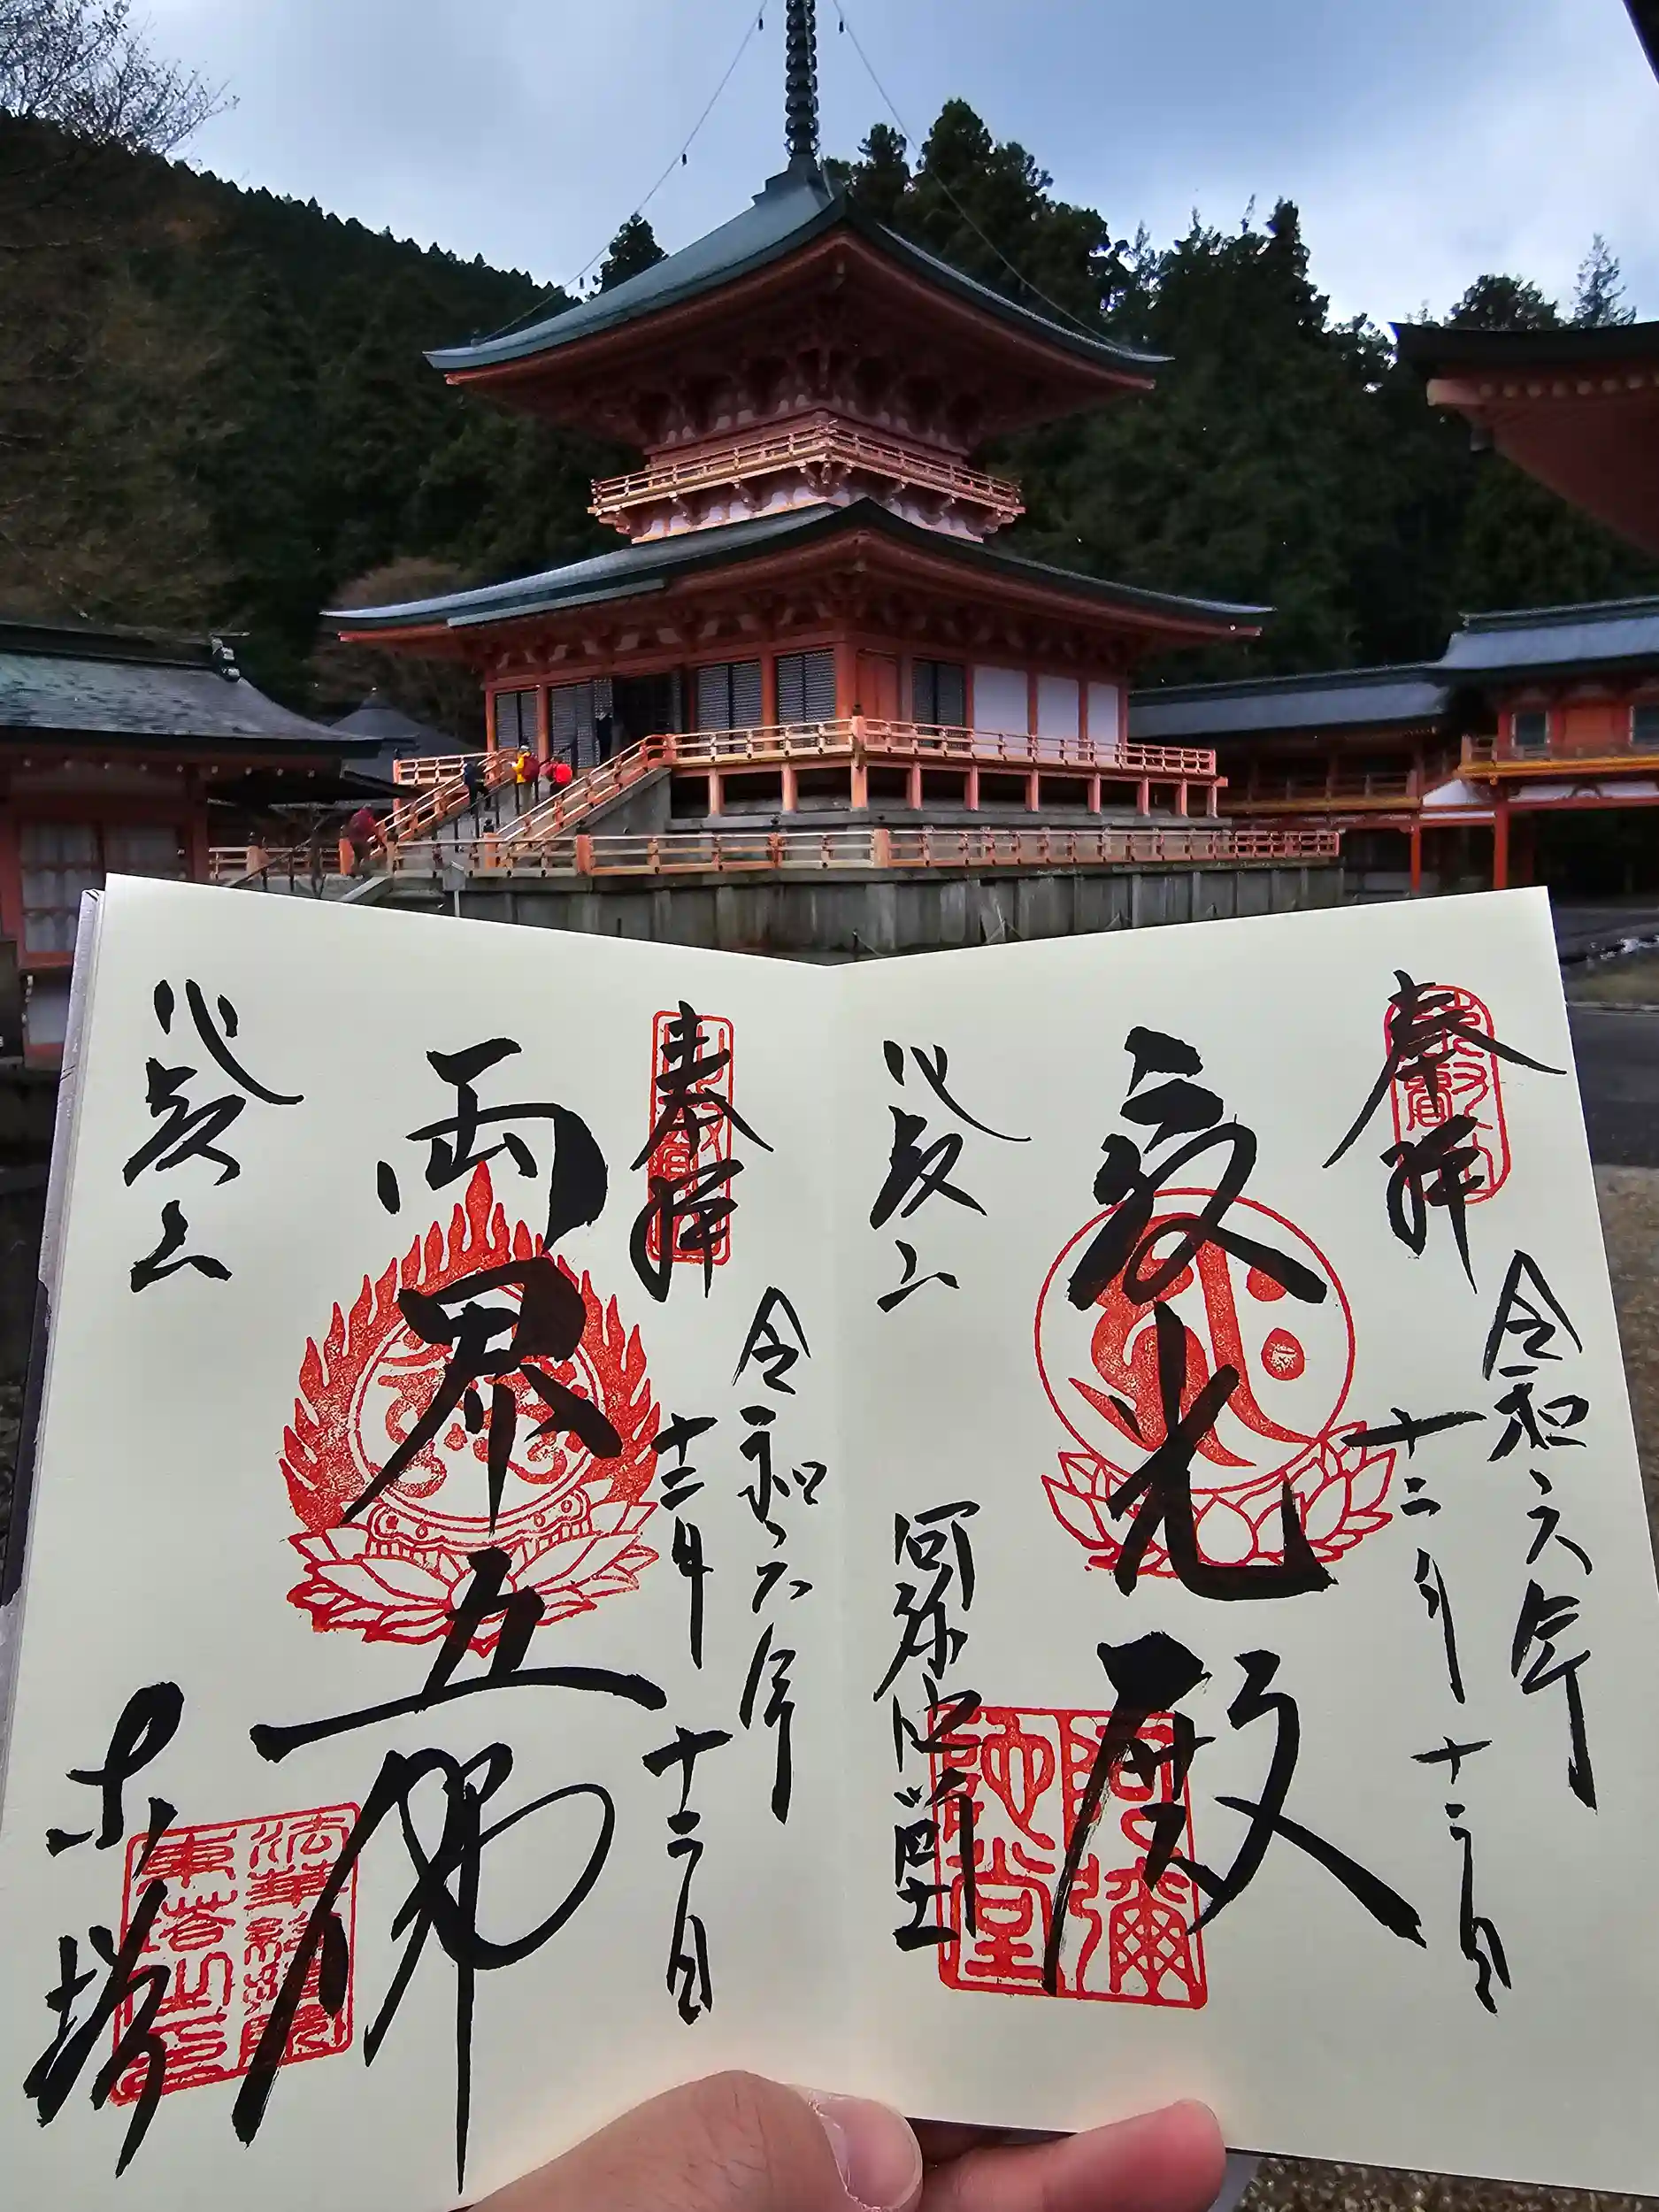 奉拝
令和六年
十二月十二日
寂光殿
比叡山
阿弥陀堂
阿彌陀堂
奉拝
令和六年
十二月十二日
両界五佛
比叡山
東塔
法華総持院
東塔之印